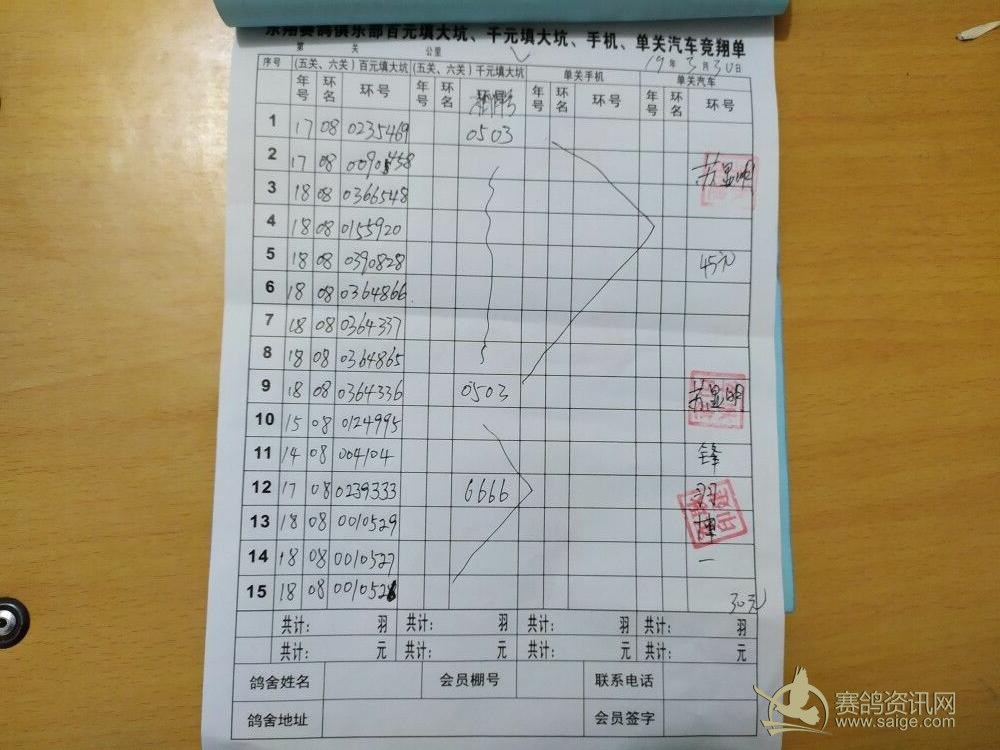 东翔赛鸽俱乐部百元填大坑、千元填大坑、手机、单关汽车竞翔单
第 关 公里 19年3月30日
序号 (五关、六关)百元填大坑 (五关、六关)千元填大坑 单关手机 单关汽车
年号 环名 环号 年号 环名 环号 年号 环名 环号 年号 环名 环号
1 17 08 0235469 0503
2 17 08 苏显明
3 18 08 0366548
4 18 08 0155920
5 18 08 0390828 45元
6 18 08 0364866
7 18 08 0364337
8 18 08 0364865
9 18 08 0364336 0503 苏显明
10 15 08 0124995
11 14 08 004104 锋
12 17 08 0239333 6666 羽
13 18 08 0010529
14 18 08 0010527 一
15 18 08 30元
共计: 羽 共计: 羽 共计: 羽 共计: 羽
共计: 元 共计: 元 共计: 元 共计: 元
鸽舍姓名 会员棚号 联系电话
鸽舍地址 会员签字
赛鸽资讯网
www.saige.com